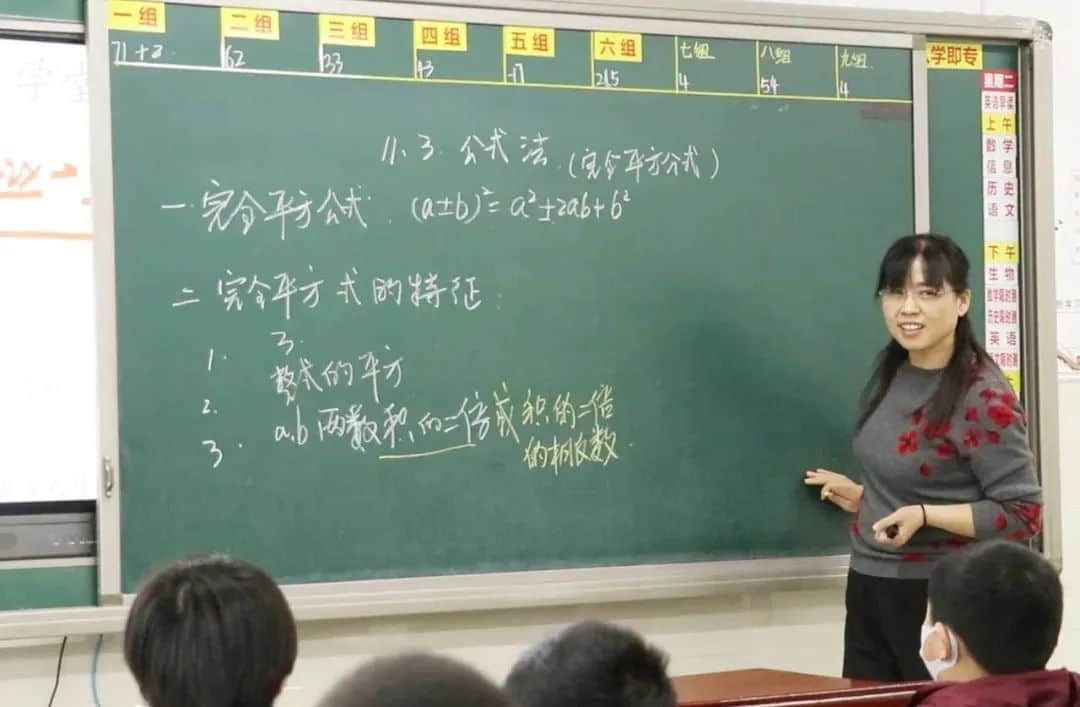 一组 二组 三组 四组 五组 六组 七组 八组 九组
71+2 62 33 43 -17 215 4 54 4
11.3.公式法.(完全平方公式)
一.完全平方公式.(a±b)²=a²±2ab+b²
二完全平方式的特征:
1. 3.
2. 数式的平方
3. a.b两数积的二倍或积的二倍
的相反数.
学即专
星期二
英语早读
上午
数学
信息
历史
语文
下午
生物
英语
学堂